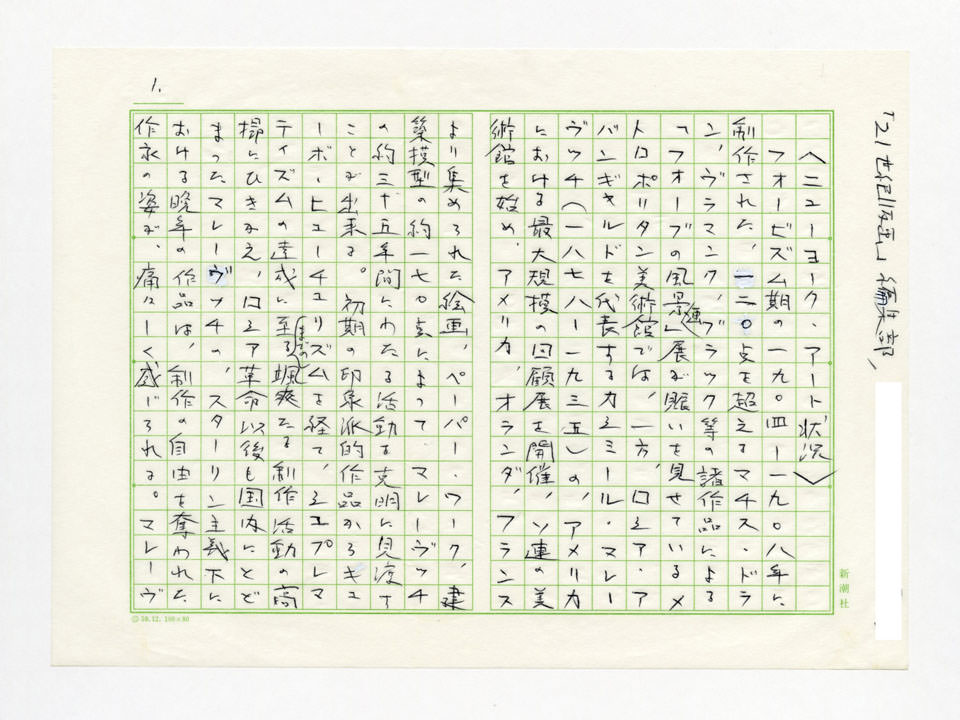 1.
「21世紀版画」編集部
〈ニューヨーク・アート状況〉
フォービズム期の一九〇四ー一九〇八年に
制作された、一二〇点を超えるマチス・ドラ
ン、ヴラマンク、ブラック等の諸作品による
「フォーブの風景画」展が賑いを見せているメ
トロポリタン美術館では、一方、ロシア・ア
バンギャルドを代表するカシミール・マレー
ヴッチ(一八七八ー一九三五)の、アメリカ
における最大規模の回顧展を開催、ソ連の美
術館を始め、アメリカ、オランダ、フランス
より集められた絵画、ペーパー・ワーク、建
築模型の約一七〇点によって、マレーヴッチ
の約三十五年間にわたる活動を克明に見渡す
ことが出来る。初期の印象派的作品からキュ
ーボ・ヒューチュリズムを経て、シュプレマ
ティズムの達成に至るまでの颯爽たる制作活動の高
揚にひきかえ、ロシア革命以後も国内にとど
まったマレーヴッチの、スターリン主義下に
おける晩年の作品は、制作の自由を奪われた
作家の姿が、痛ましく感じられる。マレーヴ
新潮社
59.12. 100×80